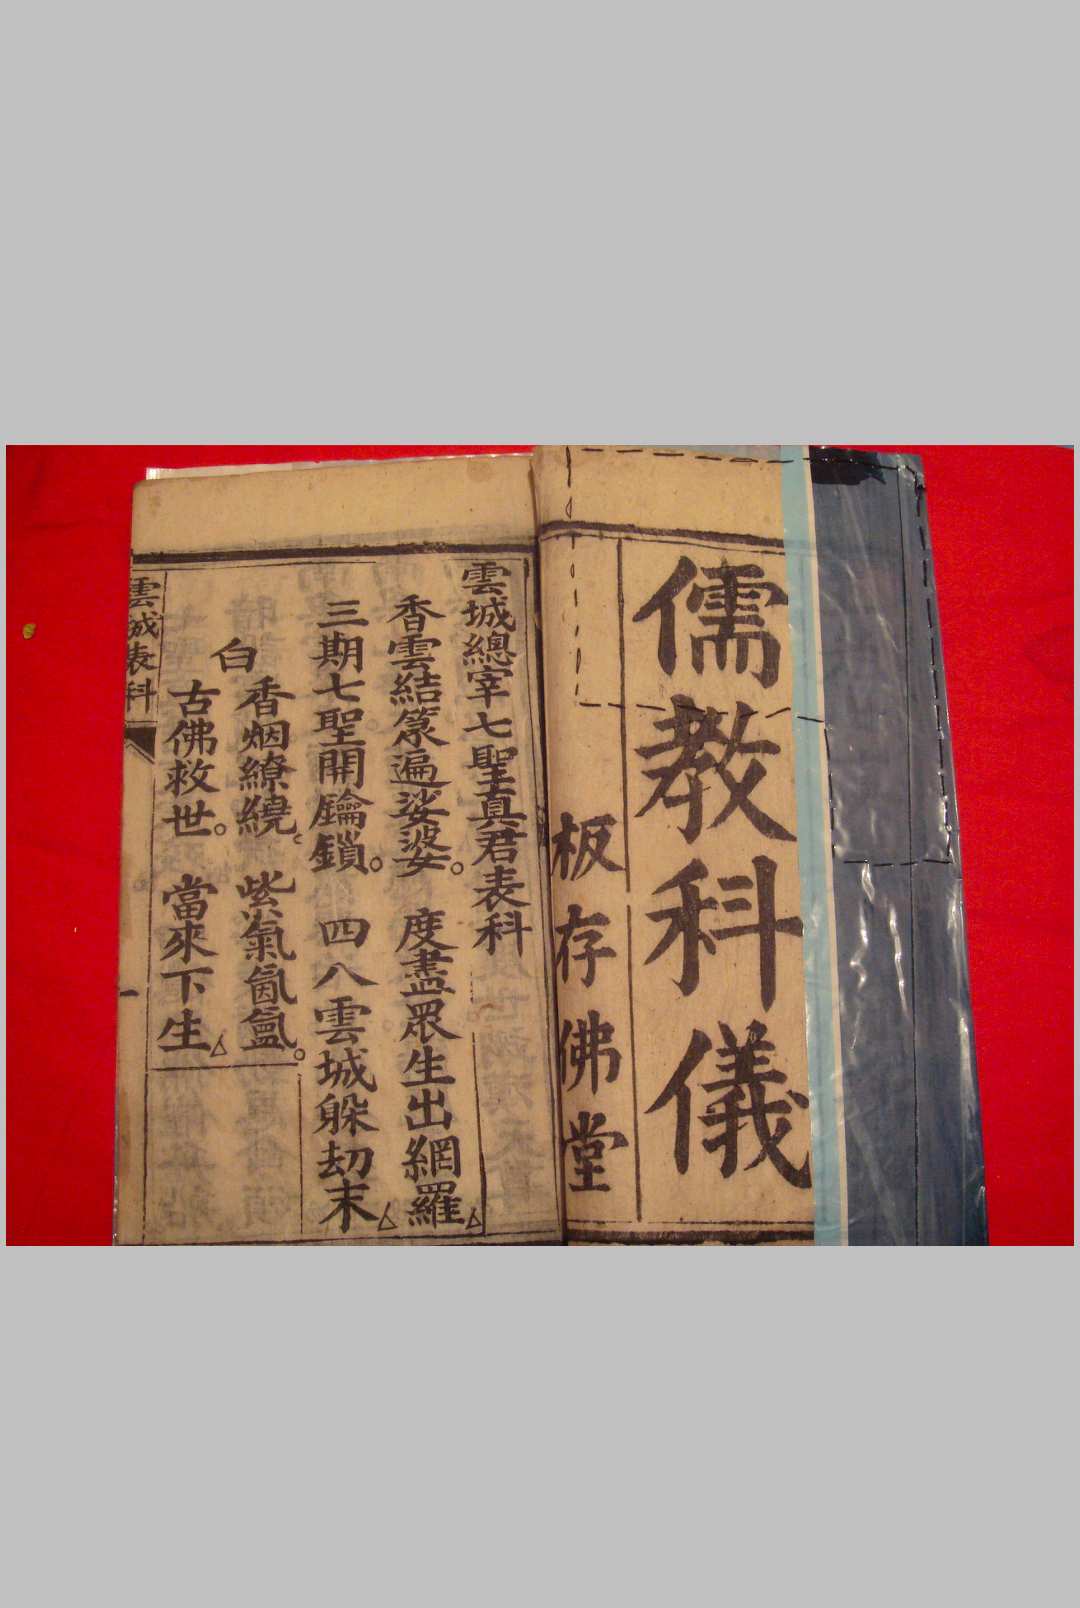 儒教科儀
板存佛堂
雲城總宰七聖真君表科
香雲結篆遍娑婆。 度盡眾生出網羅
三期七聖開鑰鎖。 四八雲城躲劫末
白
香烟繚繞。 紫氣氤氳。
古佛救世。 當來下生
雲城表科
一